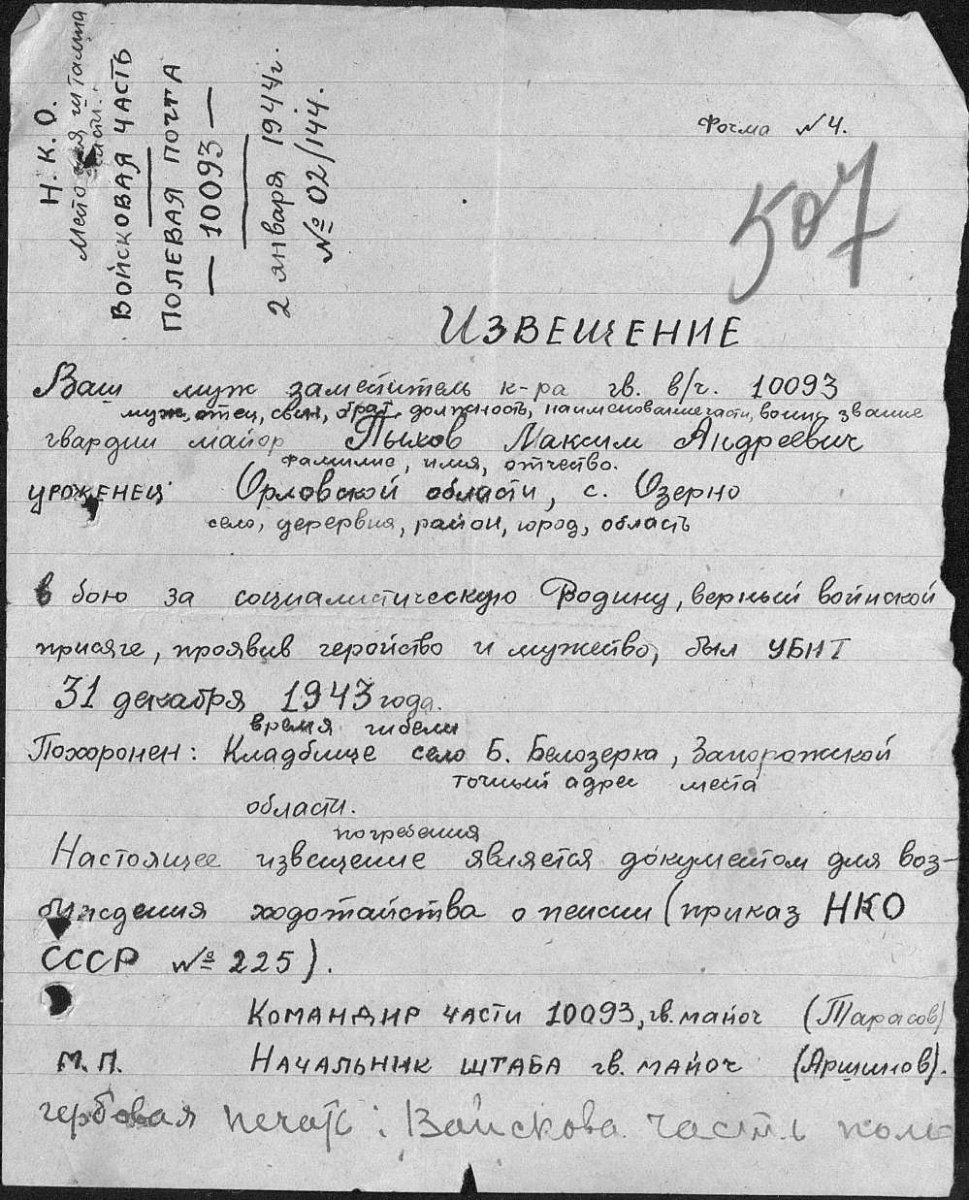 Н. К. О.
Место для штампа
части.
ВОЙСКОВАЯ ЧАСТЬ
ПОЛЕВАЯ ПОЧТА
— 10093 —
2 января 1944г.
№ 02/144.
Форма № 4.
507
ИЗВЕЩЕНИЕ
Ваш муж заместитель к-ра гв. в/ч. 10093
муж, отец, сын, брат, должность, наименование части, воинс. звание
гвардии майор Пыхов Максим Андреевич
фамилия, имя, отчество.
УРОЖЕНЕЦ Орловской области, с. Озерно
село, дерервня, район, город, область
в бою за социалистическую Родину, верный воинской
присяге, проявив геройство и мужество, был УБИТ
31 декабря 1943 года.
время гибели
Похоронен: Кладбище село Б. Белозерка, Запорожской
точный адрес места
области.
погребения
Настоящее извещение является документом для воз-
буждения ходотайства о пенсии (приказ НКО
СССР № 225).
КОМАНДИР ЧАСТИ 10093, гв. майор (Тарасов)
М.П. НАЧАЛЬНИК ШТАБА гв. майор (Аршинов).
гербовая печать: Войскова часть поле